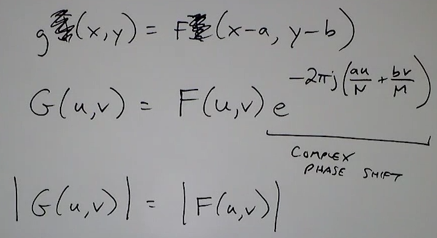 g(x,y) = F(x-a, y-b)
G(u,v) = F(u,v) e^{-2πj(au/N + bv/M)}
COMPLEX
PHASE SHIFT
|G(u,v)| = |F(u,v)|